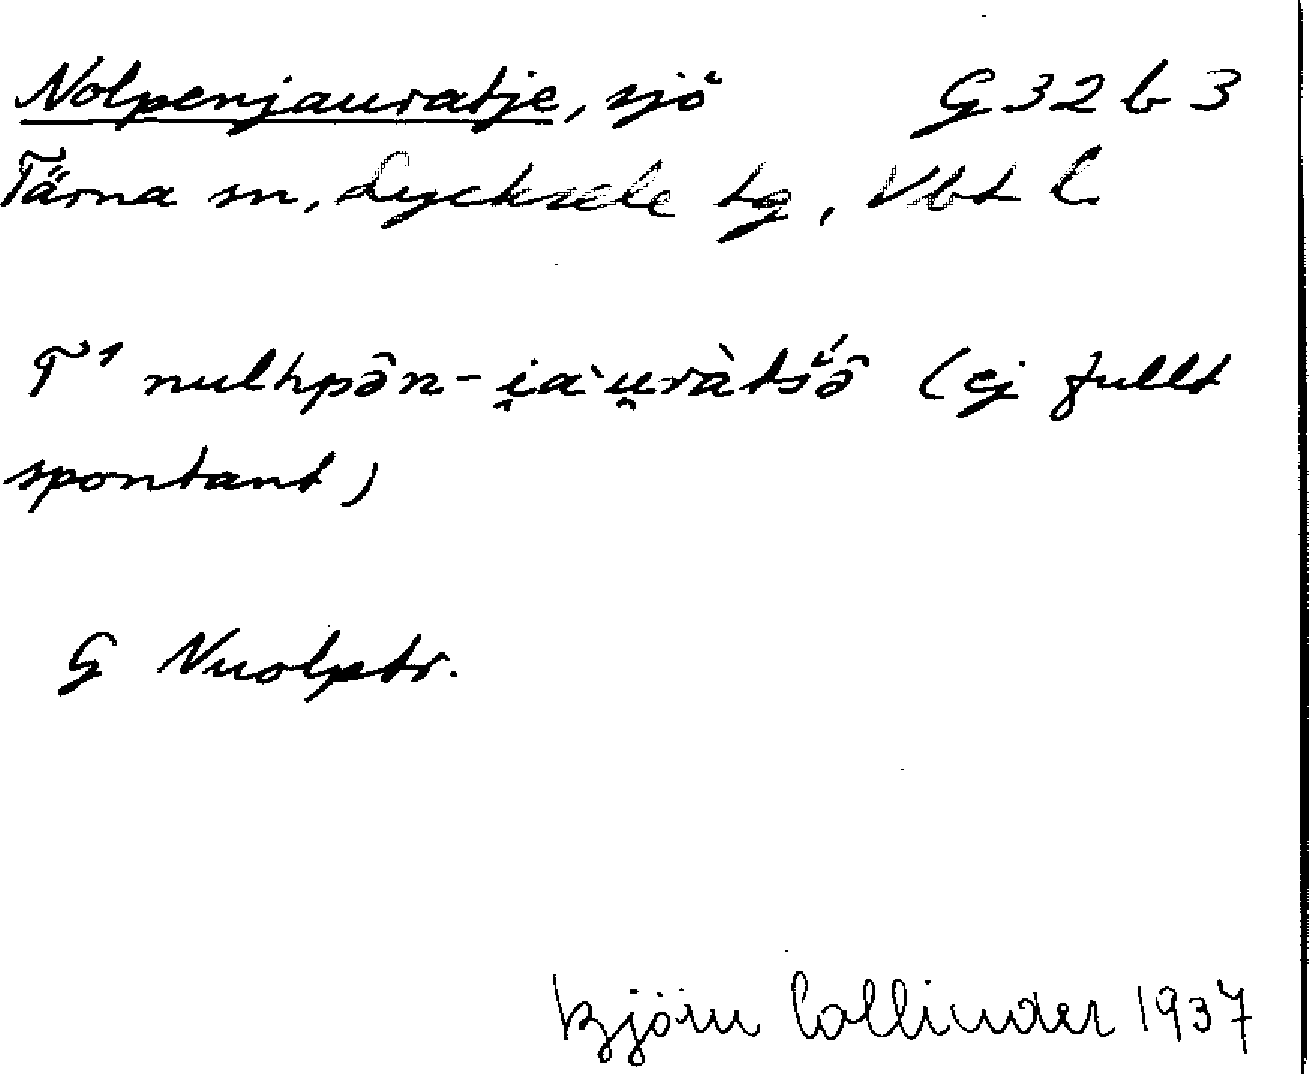 Nolpenjauratje, sjö G 32 b 3
Tärna sn, Lycksele tg, Vbt l.
T¹ nulhpə̂n-i̯a`u̯ràtśə̂ (ej fullt
spontant)
G Nuolptr.
Björn Collinder 1937